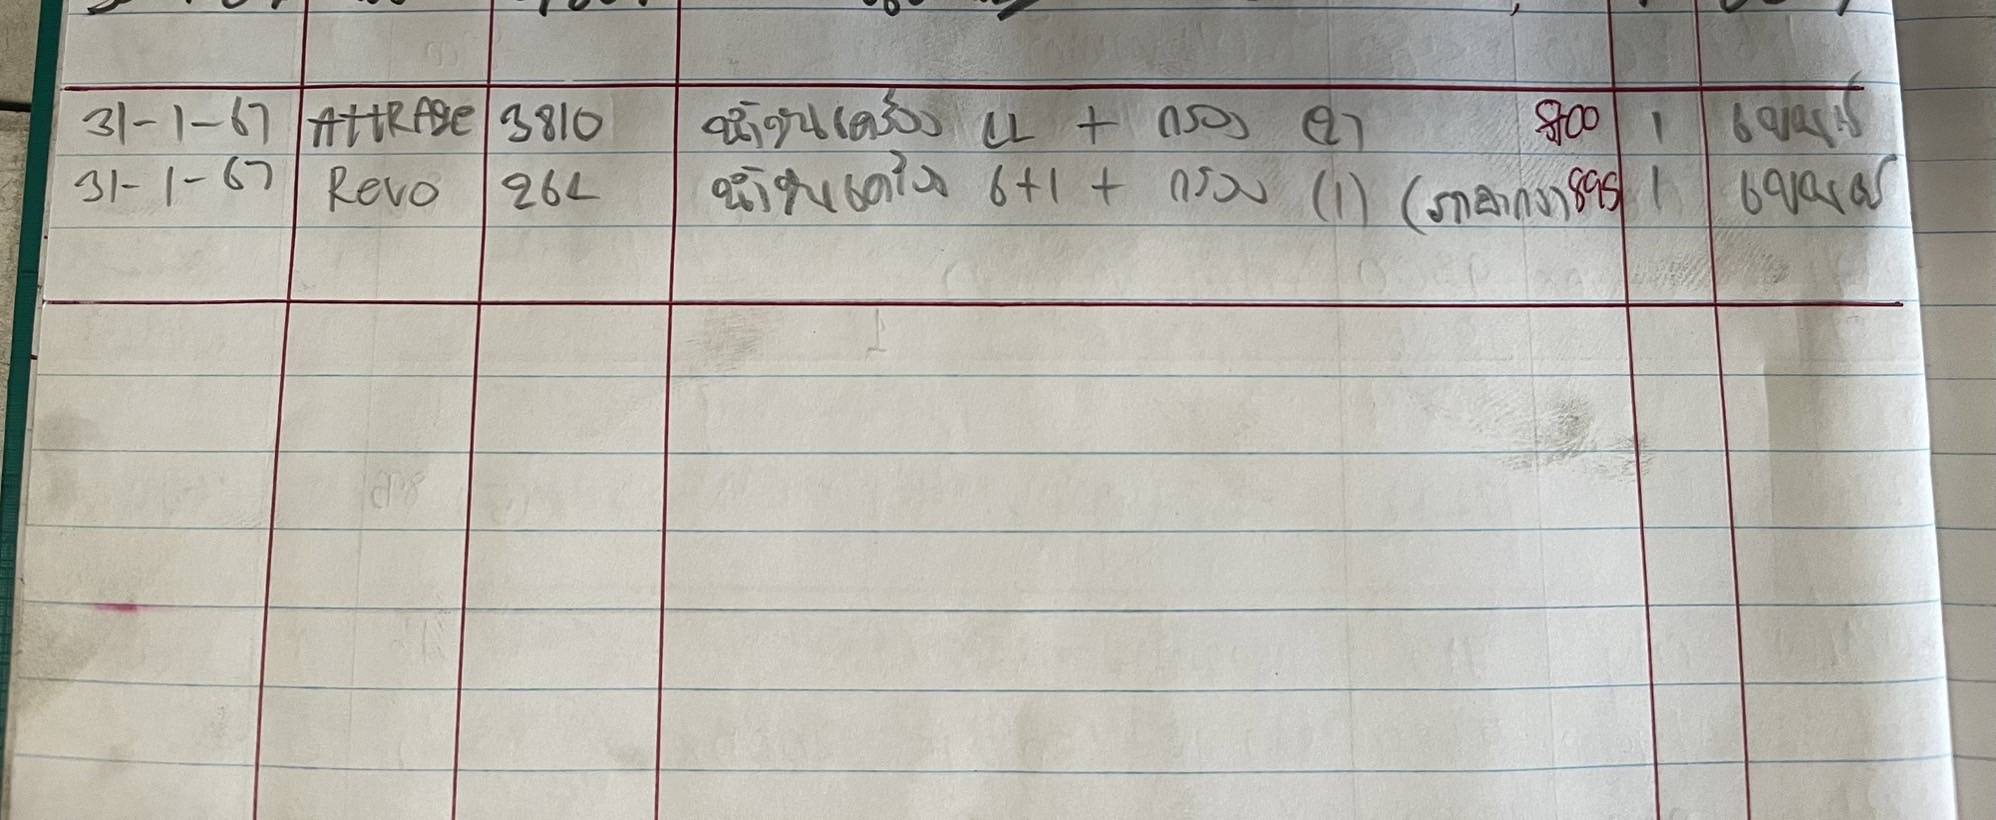 31-1-67 AttRAge 3810 น้ำมันเครื่อง 4L + กรอง 800 1
31-1-67 Revo 264 น้ำมันเครื่อง 6+1 + กรอง (1) 895 1